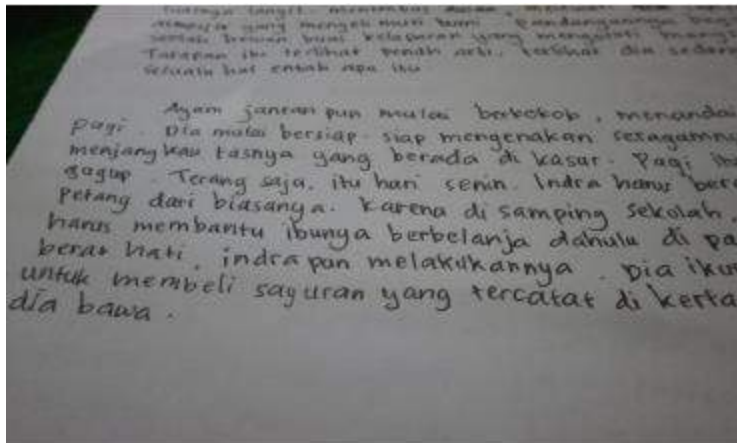 yang menyelimuti bumi. Pandangannya
seekor hewan buas kelaparan yang mengamati
Tatapan itu terlihat penuh arti. terlihat dia
sesuatu hal entah apa itu
Ayam jantan pun mulai berkokok, menandai
Pagi. Dia mulai bersiap-siap mengenakan seragamny
menjangkau tasnya yang berada di kasur. Pagi
gagup. Terang saja, itu hari senin. Indra harus ber
Petang dari biasanya. Karena di samping sekolah,
harus membantu ibunya berbelanja dahulu di pa
berat hati, indra pun melakukannya. Dia iku
untuk membeli sayuran yang tercatat di kerta
dia bawa.